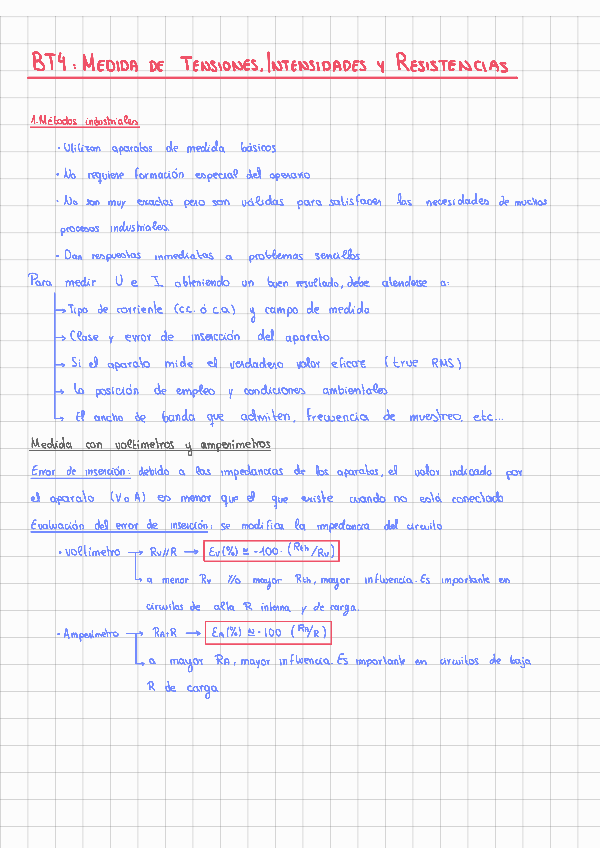 BT4: MEDIDA DE TENSIONES, INTENSIDADES Y RESISTENCIAS
1. Métodos industriales
· Utilizan aparatos de medida básicos
· No requiere formación especial del operario
· No son muy exactos pero son válidas para satisfacer las necesidades de muchos
procesos industriales.
· Dan respuestas inmediatas a problemas sencillos
Para medir U e I obteniendo un buen resultado, debe atenderse a:
→ Tipo de corriente (c.c. ó c.a.) y campo de medida
→ Clase y error de inserción del aparato
→ Si el aparato mide el verdadero valor eficaz (true RMS)
→ La posición de empleo y condiciones ambientales
→ El ancho de banda que admiten, frecuencia de muestreo, etc...
Medida con voltímetros y amperímetros
Error de inserción: debido a las impedancias de los aparatos, el valor indicado por
el aparato (V o A) es menor que el que existe cuando no está conectado
Evaluación del error de inserción: se modifica la impedancia del circuito
· Voltímetro → Rv//R → εv(%) ≅ -100 · (Rth/Rv)
→ a menor Rv y/o mayor Rth, mayor influencia. Es importante en
circuitos de alta R interna y de carga.
· Amperímetro → RA+R → εA(%) ≅ -100 (RA/R)
→ a mayor RA, mayor influencia. Es importante en circuitos de baja
R de carga